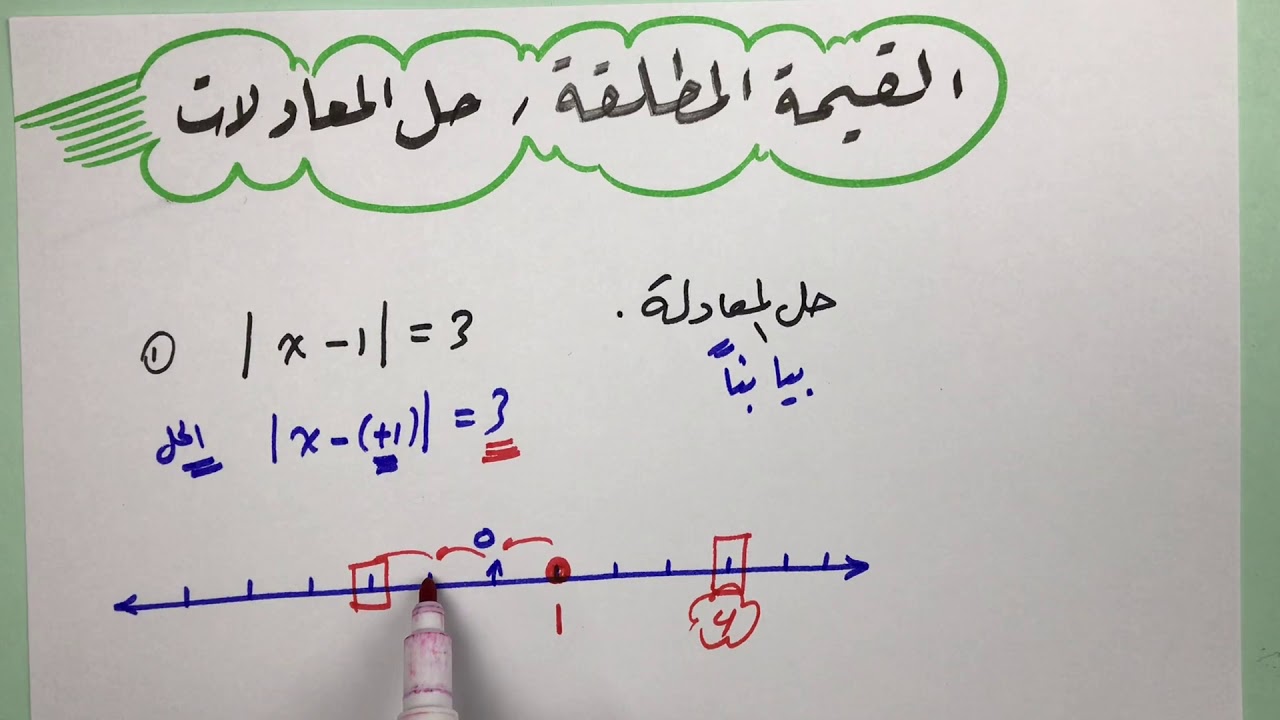 القيمة المطلقة , حل المعادلات
حل المعادلة .
① |x-1|=3
بيانياً
الحل |x-(+1)|=3
0
1
4